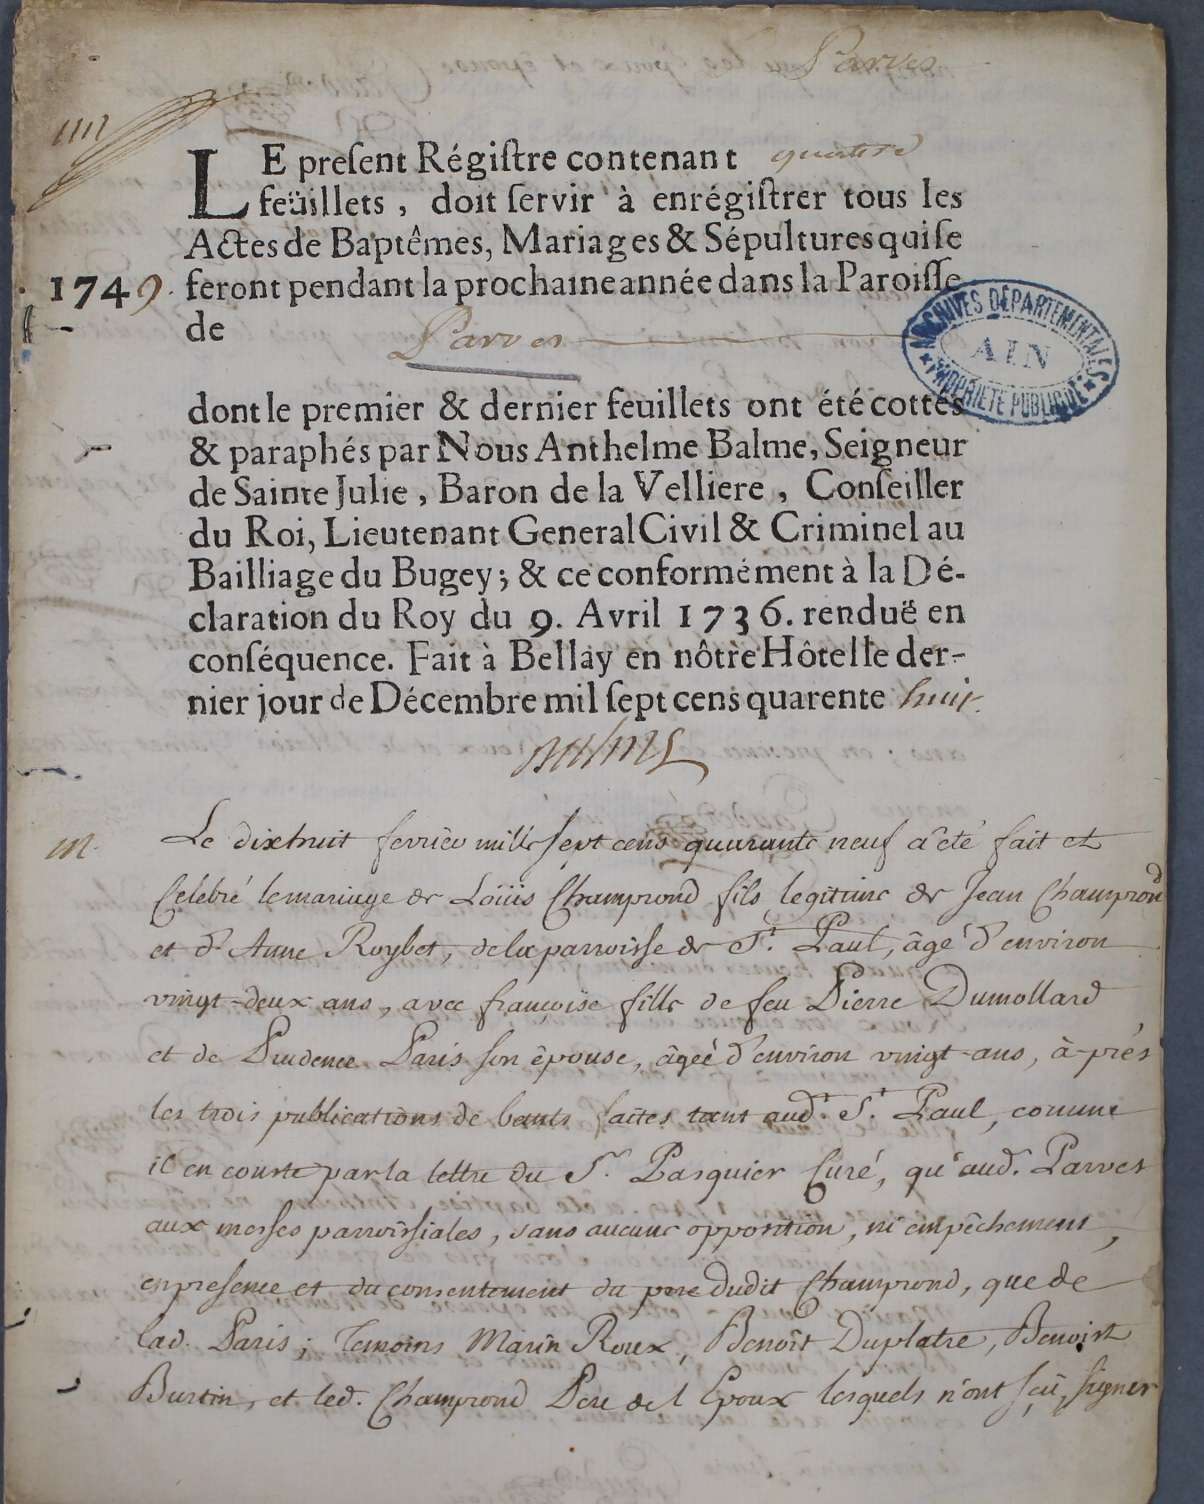 Parves
LE preſent Régiſtre contenant quatre
feüillets, doit ſervir à enrégiſtrer tous les
Actes de Baptêmes, Mariages & Sépultures qui ſe
1749. feront pendant la prochaine année dans la Paroiſſe
de Parves
ARCHIVES DÉPARTEMENTALES
AIN
PROPRIÉTÉ PUBLIQUE
dont le premier & dernier feuillets ont été cottés
& paraphés par Nous Anthelme Balme, Seigneur
de Sainte Julie, Baron de la Velliere, Conſeiller
du Roi, Lieutenant General Civil & Criminel au
Bailliage du Bugey; & ce conformément à la Dé-
claration du Roy du 9. Avril 1736. renduë en
conſéquence. Fait à Bellay en nôtre Hôtel le der-
nier jour de Décembre mil ſept cens quarente huit.
m. Le dixhuit fevrier mille sept cens quarante neuf a été fait et
Celebré le mariage de Loüis Champrond fils legitime de Jean Champrond
et d'Anne Roybet, de la parroisse de St. Paul, âgé d'environ
vingt-deux ans, avec françoise fille de feu Pierre Dumollard
et de Prudence Paris son épouse, âgée d'environ vingt-ans, à-prés
les trois publications de bants faites tant aud. St. Paul, comme
il en conste par la lettre du Sr. Pasquier Curé, qu'aud. Parves
aux messes parroissiales, sans aucune opposition, ni empêchement,
en presence et du consentement du pere dudit Champrond, que de
lad. Paris; Temoins Marin Roux, Benoît Duplatre, Benoist
Burtin, et led. Champrond Pere de l'Epoux lesquels n'ont sçû signer